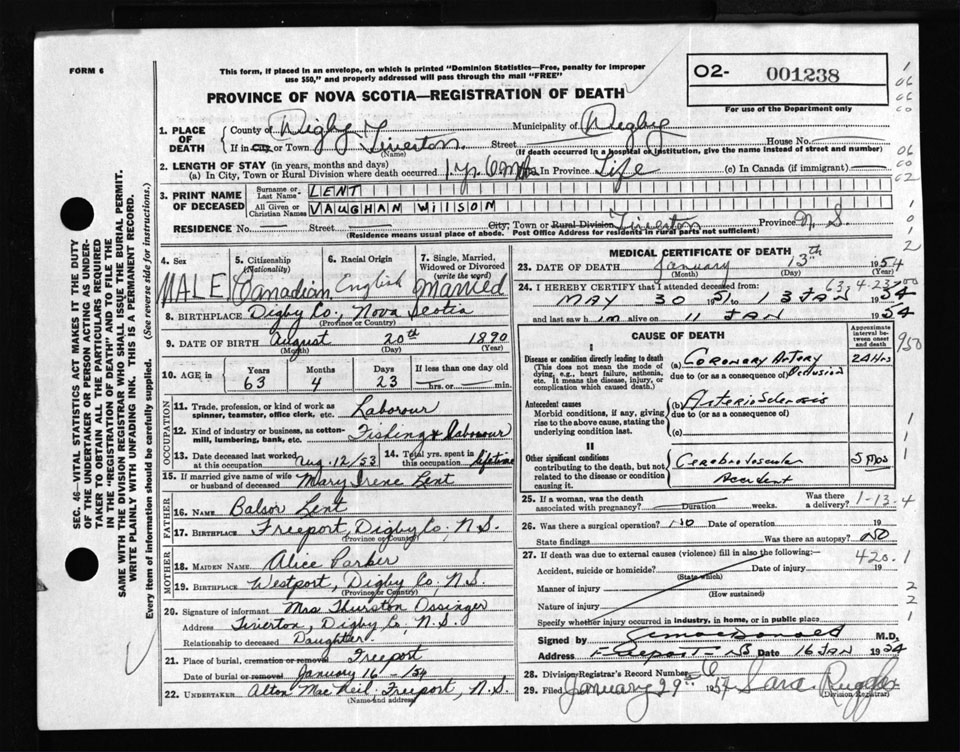 FORM 6
This form, if placed in an envelope, on which is printed "Dominion Statistics—Free, penalty for improper
use $50," and properly addressed will pass through the mail "FREE"
O2- 001238
For use of the Department only
PROVINCE OF NOVA SCOTIA—REGISTRATION OF DEATH
1. PLACE OF DEATH
County of Digby Municipality of Digby
If in City or Town Tiverton. Street House No.
(Name) (If death occurred in a hospital or institution, give name instead of street and number)
2. LENGTH OF STAY (in years, months and days)
(a) In City, Town or Rural Division where death occurred 1 yr. In Province Life (c) In Canada (if immigrant)
3. PRINT NAME OF DECEASED
Surname or Last Name LENT
All Given or Christian Names VAUGHAN WILSON
RESIDENCE No. — Street City, Town or Rural Division Tiverton Province N. S.
(Residence means usual place of abode. Post Office Address for residents in rural parts not sufficient)
4. Sex MALE
5. Citizenship (Nationality) Canadian
6. Racial Origin English
7. Single, Married, Widowed or Divorced (write the word) Married
8. BIRTHPLACE Digby Co., Nova Scotia
(Province or Country)
9. DATE OF BIRTH August 20th 1890
(Month) (Day) (Year)
10. AGE in Years Months Days If less than one day old
63 4 23 hrs. or min.
OCCUPATION
11. Trade, profession, or kind of work as spinner, teamster, office clerk, etc. Labourer
12. Kind of industry or business, as cotton-mill, lumbering, bank, etc. Fishing & labourer
13. Date deceased last worked at this occupation Aug. 12/53
14. Total yrs. spent in this occupation lifetime
15. If married give name of wife or husband of deceased Mary Irene Lent
FATHER
16. NAME Balsor Lent
17. BIRTHPLACE Freeport, Digby Co., N.S.
(Province or Country)
MOTHER
18. MAIDEN NAME Alice Parker
19. BIRTHPLACE Westport, Digby Co., N.S.
(Province or Country)
20. Signature of informant Mrs Thurston Ossinger
Address Tiverton, Digby Co., N.S.
Relationship to deceased Daughter.
21. Place of burial, cremation or removal Freeport
Date of burial or removal January 16 - /54
22. UNDERTAKER Alton MacNeil: Freeport, N.S.
(Name and address)
MEDICAL CERTIFICATE OF DEATH
23. DATE OF DEATH January 13th 1954
(Month) (Day) (Year)
63, 4-23
24. I HEREBY CERTIFY that I attended deceased from:
MAY 30 1951 to 13 JAN 1954
and last saw him alive on 11 JAN 1954
CAUSE OF DEATH
Approximate interval between onset and death
I
Disease or condition directly leading to death
(This does not mean the mode of dying, e.g., heart failure, asthenia, etc. It means the disease, injury, or complication which caused death.)
(a) Coronary Artery Occlusion 24 Hrs
due to (or as a consequence of)
Antecedent causes
Morbid conditions, if any, giving rise to the above cause, stating the underlying condition last.
(b) Arteriosclerosis
due to (or as a consequence of)
(c)
II
Other significant conditions
contributing to the death, but not related to the disease or condition causing it
Cerebrovascular Accident 5 Mos
25. If a woman, was the death associated with pregnancy? Duration weeks. Was there a delivery?
1-13-4
26. Was there a surgical operation? no Date of operation 19
State findings Was there an autopsy? NO
27. If death was due to external causes (violence) fill in also the following:—
420.1
Accident, suicide or homicide? Date of injury 19
(State which)
Manner of injury
(How sustained)
Nature of injury
Specify whether injury occurred in industry, in home, or in public place
Signed by MacDonald M.D.
Address Freeport - NS Date 16 JAN 1954
28. Division Registrar's Record Number 6
29. Filed January 29th 1954 Sara Ruggles
(Division Registrar)
SEC. 46—VITAL STATISTICS ACT MAKES IT THE DUTY
OF THE UNDERTAKER OR PERSON ACTING AS UNDER-
TAKER TO OBTAIN ALL THE PARTICULARS REQUIRED
IN THE "REGISTRATION OF DEATH" AND TO FILE THE
SAME WITH THE DIVISION REGISTRAR WHO SHALL ISSUE THE BURIAL PERMIT.
WRITE PLAINLY WITH UNFADING INK. THIS IS A PERMANENT RECORD.
Every item of information should be carefully supplied. (See reverse side for instructions.)